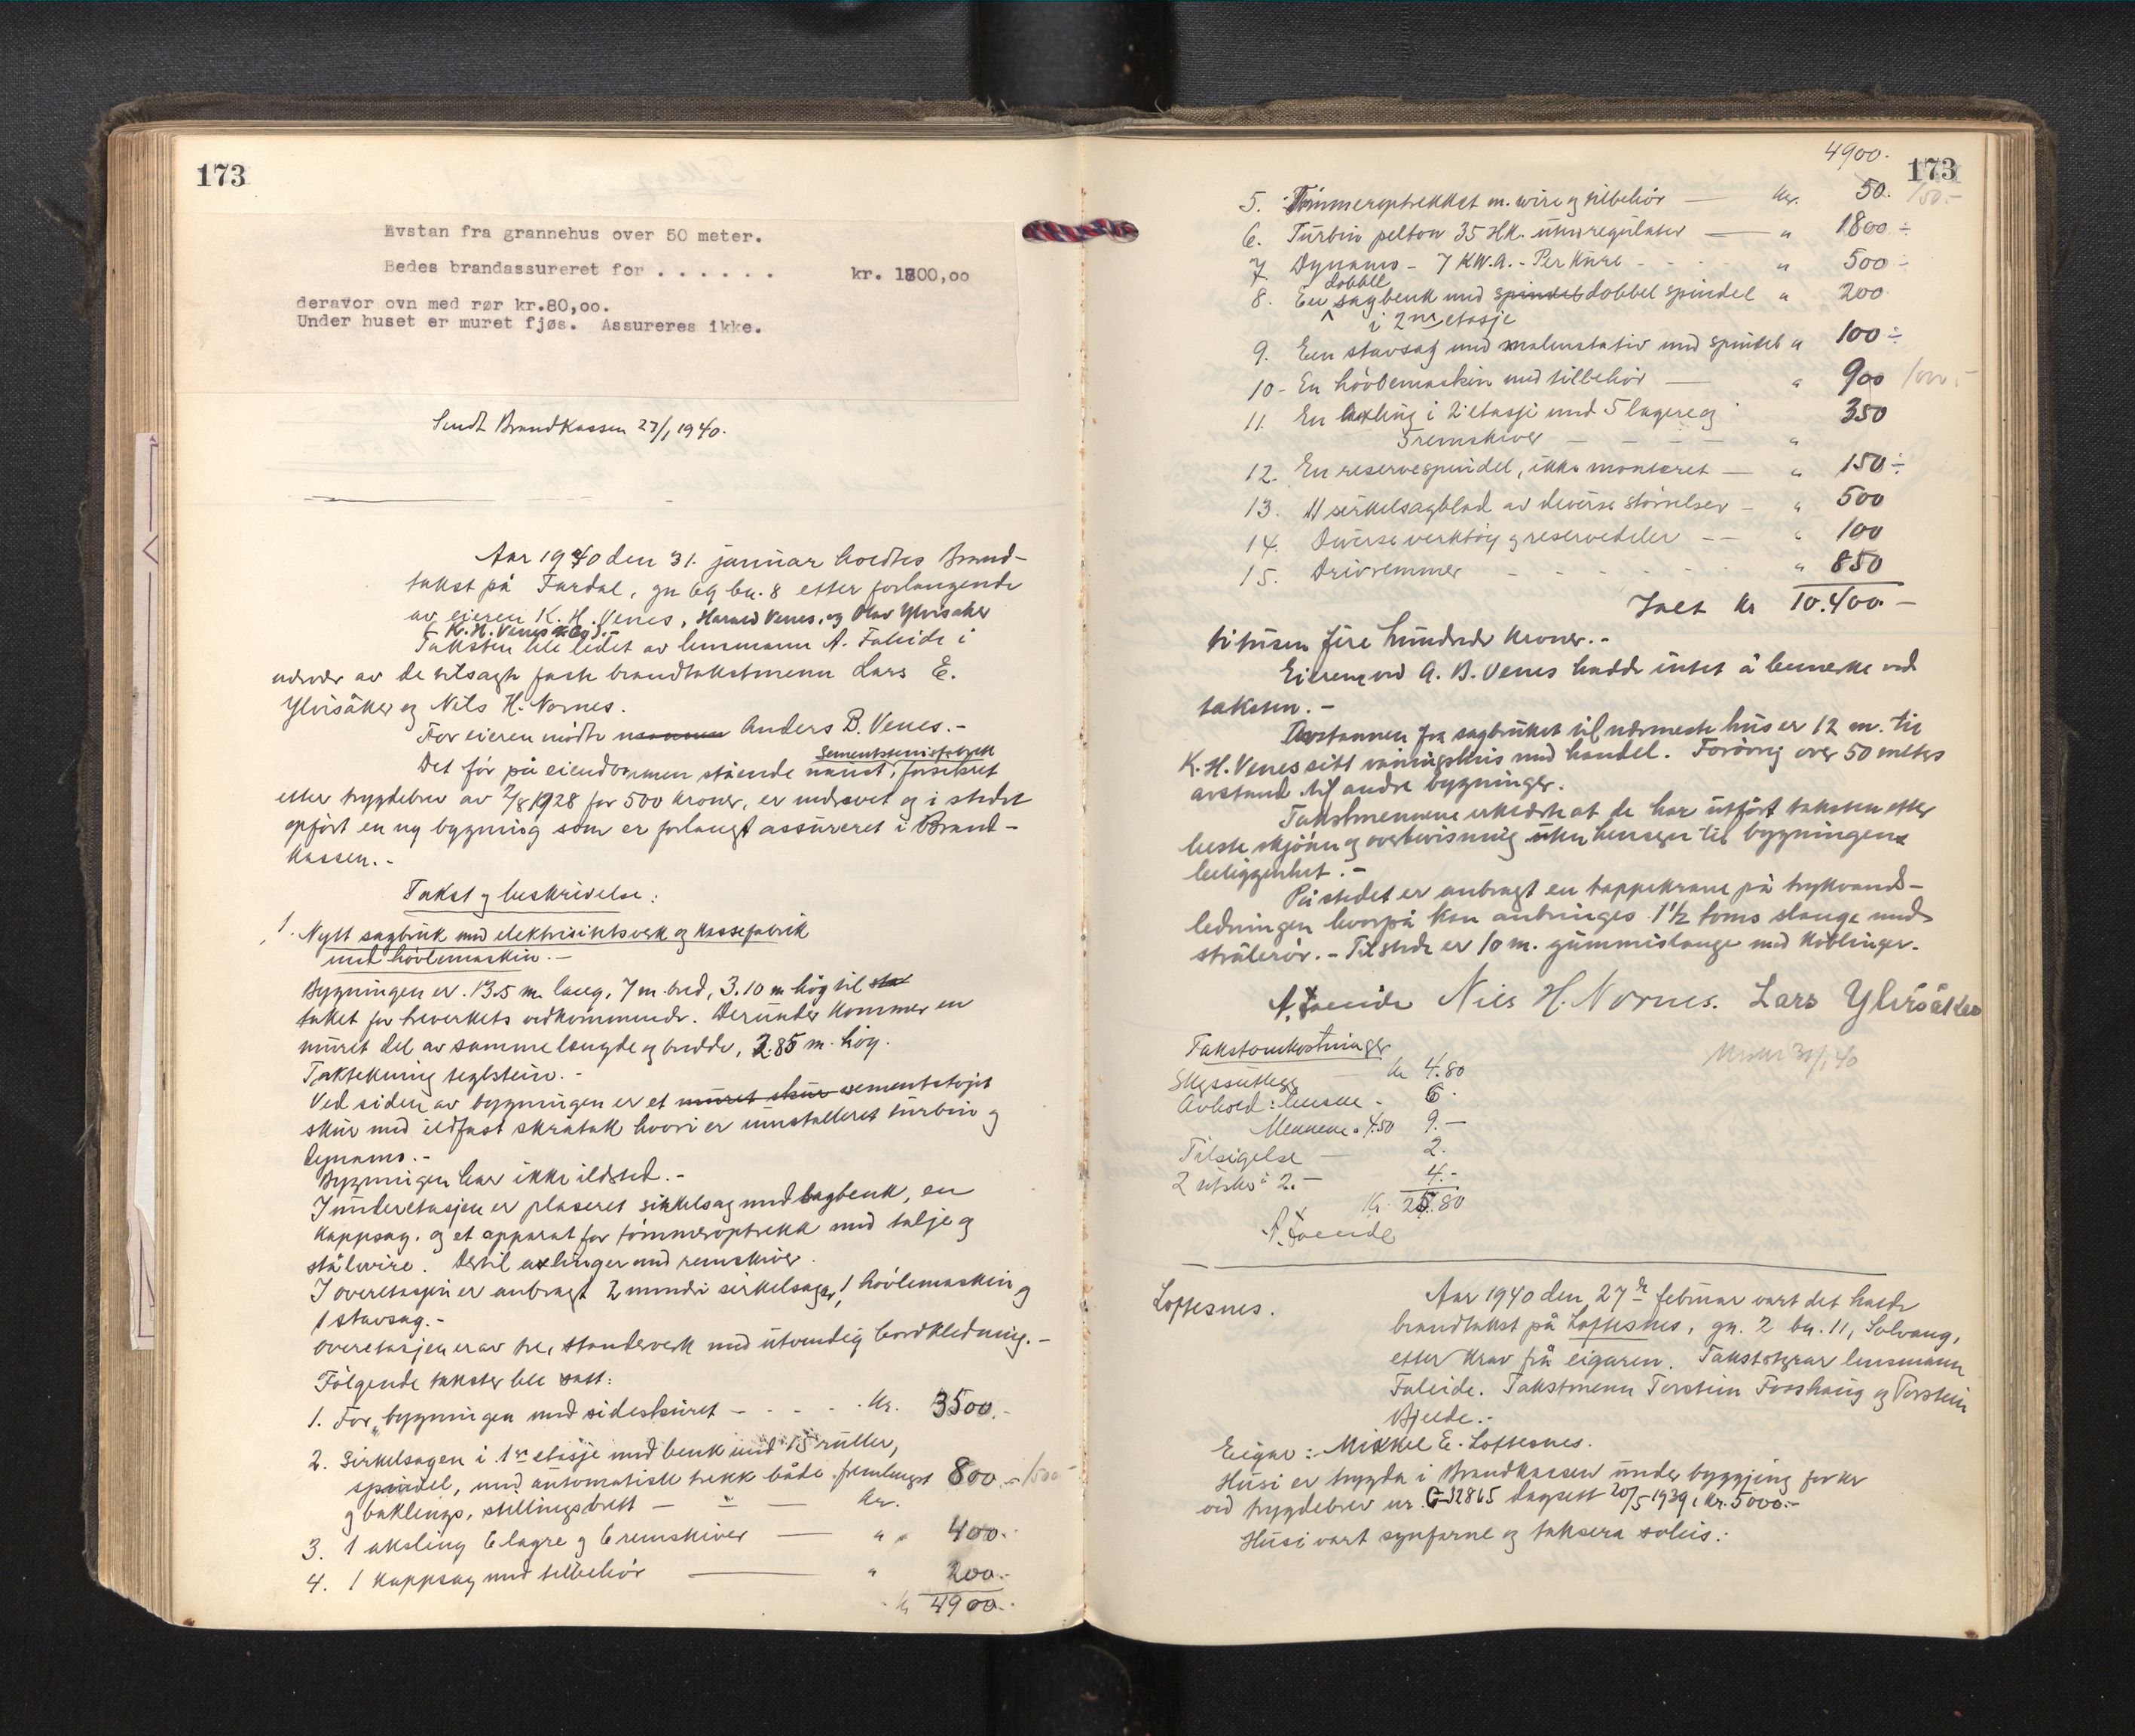 173
Avstan fra grannehus over 50 meter.
Bedes brandassureret for . . . . . . kr. 1800,oo
deravor ovn med rør kr.80,oo.
Under huset er muret fjøs. Assureres ikke.
Sendt BrandKassen 27/1 1940.
Aar 1940 den 31. januar holdtes Brand-
takst på Fardal, gn 69 bn. 8 etter forlangende
av eieren K. H. Venes, Harald Venes, og Olav Ylvisaker
Taksten ble ledet av lensmann A. Faleide i
nærvær av de tilsagte faste brandtakstmenn Lars E.
Ylvisåker og Nils H. Nornes.
For eieren møtte Anders B. Venes.-
Sementstensfabrik
Det før på eiendommen stående naust, forsikret
etter trygdebrev av 7/8 1928 for 500 kroner, er nedrevet og i stedet
opført en ny bygning som er forlangt assureret i Brand-
kassen.-
Takst og beskrivelse:
1. Nytt sagbruk med elektrisitetsverk og kassefabrik
med høvlemaskin.-
Bygningen er 13.5 m lang, 7 m bred, 3.10 m høg til
taket for treverkets vedkommende. Derunder kommer en
muret del av samme lengde og bredde, 2.85 m. høg.
Taktekning teglstein.-
Ved siden av bygningen er et muret skur sementstøpt
skur med ildfast skråtak hvori er innstalleret turbin og
dynamo.-
Bygningen har ikke ildsted.-
I underetasjen er plaseret sirkelsag med sagbenk, en
kappsag, og et apparat for tømmeroptrekk med talje og
stålwire. Dertil axlinger med remskiver.
I overetasjen er anbragt 2 mindre sirkelsager, 1 høvlemaskin og
1 stavsag.-
Overetasjen er av tre, standerverk med utvendig bordkledning.-
Følgende takster ble satt:
1. For bygningen med sideskuret - - - - kr. 3500.-
2. Sirkelsagen i 1ste etasje med benk med 15 ruller,
spindel, med automatisk trekk både fremlengst 800.- 1500
og baklengs, stillingsbrett - - - kr.
3. 1 aksling 6 lagre og 6 remskiver — " 400.-
4. 1 Kappsag med tilbehør — " 200.-
kr 4900.-
4900.
173
5. Tømmeroptrekket m. wire og tilbehør — kr. 50. 150.-
6. Turbin pelton 35 HK. uten regulator — " 1800 ÷
7. Dynamo - 7 KW.A. - Per Kure - - - " 500 ÷
dobbel
8. En sagbenk med spindel dobbel spindel " 200
i 2nen etasje
9. Een stavsag med malmstativ med spindel " 100 ÷
10- En høvlemaskin med tilbehør — " 900 1000.-
11. En axling i 2 etasje med 5 lagere og 350
5 remskiver - - - - "
12. En reservespindel, ikke monteret — " 150 ÷
13. 11 sirkelsagblad av diverse størrelser - " 500
14. Diverse verktøy og reservedeler - - " 100
15. Drivremmer - - - - - " 850
Ialt kr 10.400.-
titusen fire hundrede kroner.-
Eieren ved A. B. Venes hadde intet å bemerke ved
taksten.-
Avstannen fra sagbruket til nærmeste hus er 12 m. til
K. H. Venes sitt våningshus med handel. Forøvrig over 50 meters
avstand til andre bygninger.
Takstmennene erklærte at de har utført taksten etter
beste skjønn og overbevisning uten hensyn til bygningens
beliggenhet.-
På stedet er anbragt en tappekrane på trykvands-
ledningen hvorpå kan anbringes 1 1/2 toms slange med
strålerør.- Tilstede er 10 m. gummislange med koblinger.
A. Faleide Nils H. Nornes. Lars Ylvisåker
Takstomkostninger
Skyssutlegg — kr 4.80
Avhold: lensm - 6.
Mennene à 4.50 9.-
Tilsigelse — 2.
2 utskr à 2.- 4.-
Kr. 25.80
A. Faleide
Loftesnes.
Aar 1940 den 27de februar vart det halde
brandtakst på Loftesnes, gn. 2 bn. 11, Solvang,
etter krav frå eigaren. Takststyrar lensmann
Faleide. Takstmenn Torstein Fosshaug og Torstein
Bjelde.-
Eigar: Mikkel E. Loftesnes.
Husi er trygda i Brandkassen under bygging for kr
ved trygdebrev nr. G 32865 dagsett 20/5-1939, kr. 5000.-
Husi vart synfarne og taksera soleis: